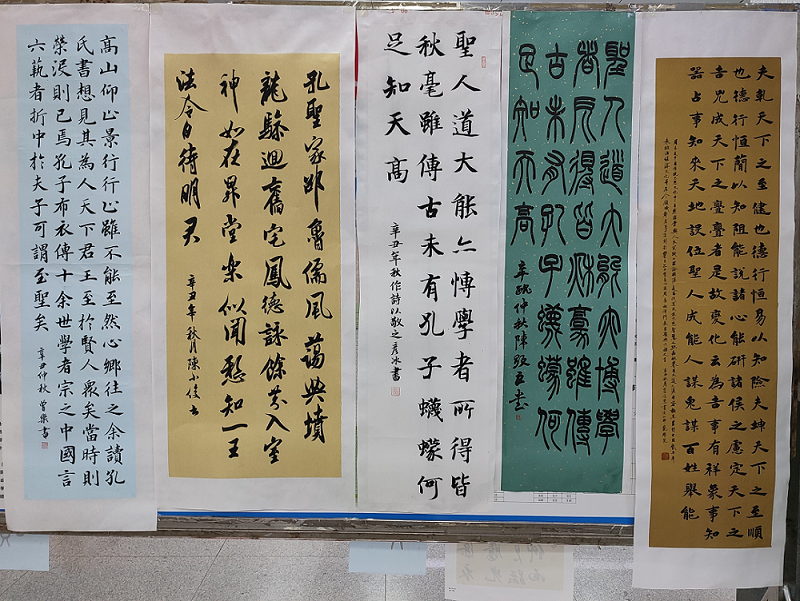 夫乾天下之至健也德行恒易以知險夫坤天下之至順
也德行恒簡以知阻能說諸心能研諸侯之慮定天下之
吉凶成天下之亹亹者是故變化云為吉事有祥象事知
器占事知來天地設位聖人成能人謀鬼謀百姓與能
聖人道大能亦博學
者所得皆秋毫雖傳
古未有孔子蠛蠓何
足知天高
仲秋陳
聖人道大能亦博學者所得皆
秋毫雖傳古未有孔子蠛蠓何
足知天高
辛丑年秋作詩以敬之彥冰書
孔聖家鄒魯儒風藹典墳
龍驂迴舊宅鳳德詠餘芬入室
神如在昇堂樂似聞懸知一王
法今日待明君
辛丑年秋月陳小俊書
高山仰止景行行止雖不能至然心鄉往之余讀孔
氏書想見其為人天下君王至於賢人眾矣當時則
榮沒則已焉孔子布衣傳十余世學者宗之中國言
六藝者折中於夫子可謂至聖矣
辛丑仲秋曾樂書